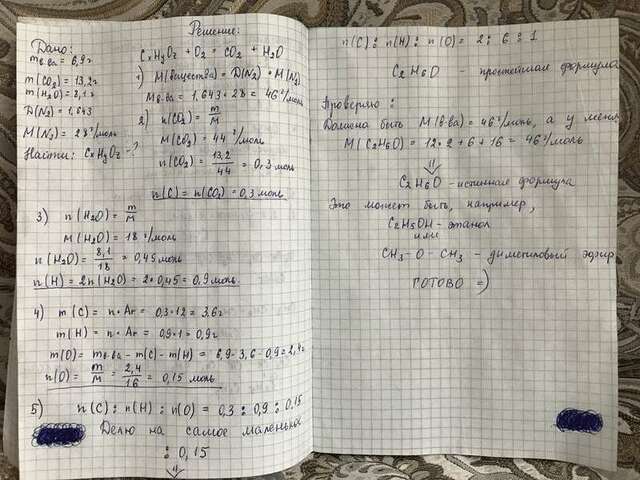 Решение:
Дано:
m в.ва = 6,9 г
m(CO₂) = 13,2 г
m(H₂O) = 8,1 г
D(N₂) = 1,643
M(N₂) = 28 г/моль
Найти: CxHyOz - ?
CxHyOz + O₂ = CO₂ + H₂O
1) M(вещества) = D(N₂) • M(N₂)
M в.ва = 1,643 • 28 = 46 г/моль
2) n(CO₂) = m/M
M(CO₂) = 44 г/моль
n(CO₂) = 13,2/44 = 0,3 моль
n(C) = n(CO₂) = 0,3 моль
3) n(H₂O) = m/M
M(H₂O) = 18 г/моль
n(H₂O) = 8,1/18 = 0,45 моль
n(H) = 2n(H₂O) = 2•0,45 = 0,9 моль
4) m(C) = n • Ar = 0,3•12 = 3,6 г
m(H) = n • Ar = 0,9•1 = 0,9 г
m(O) = m в.ва - m(C) - m(H) = 6,9 - 3,6 - 0,9 = 2,4 г
n(O) = m/M = 2,4/16 = 0,15 моль
5) n(C) : n(H) : n(O) = 0,3 : 0,9 : 0,15
Делю на самое маленькое
: 0,15
⇓
n(C) : n(H) : n(O) = 2 : 6 : 1
C₂H₆O - простейшая формула
Проверяю :
Должна быть M(в-ва) = 46 г/моль, а у меня
M(C₂H₆O) = 12•2 + 6 + 16 = 46 г/моль
⇓
C₂H₆O - истинная формула
Это может быть, например,
C₂H₅OH - этанол
или
CH₃ - O - CH₃ - диметиловый эфир
ГОТОВО =)